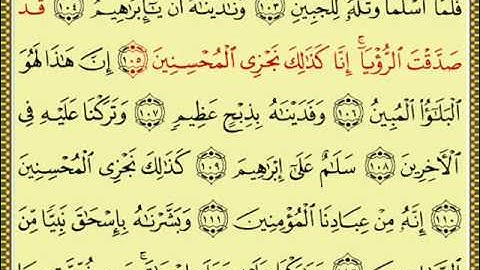 فَلَمَّا أَسْلَمَا وَتَلَّهُۥ لِلْجَبِينِ ١٠٣ وَنَٰدَيْنَٰهُ أَن يَٰٓإِبْرَٰهِيمُ ١٠٤ قَدْ
صَدَّقْتَ ٱلرُّءْيَآ ۚ إِنَّا كَذَٰلِكَ نَجْزِى ٱلْمُحْسِنِينَ ١٠٥ إِنَّ هَٰذَا لَهُوَ
ٱلْبَلَٰٓؤُا۟ ٱلْمُبِينُ ١٠٦ وَفَدَيْنَٰهُ بِذِبْحٍ عَظِيمٍ ١٠٧ وَتَرَكْنَا عَلَيْهِ فِى
ٱلْءَاخِرِينَ ١٠٨ سَلَٰمٌ عَلَىٰٓ إِبْرَٰهِيمَ ١٠٩ كَذَٰلِكَ نَجْزِى ٱلْمُحْسِنِينَ
١١٠ إِنَّهُۥ مِنْ عِبَادِنَا ٱلْمُؤْمِنِينَ ١١١ وَبَشَّرْنَٰهُ بِإِسْحَٰقَ نَبِيًّا مِّنَ